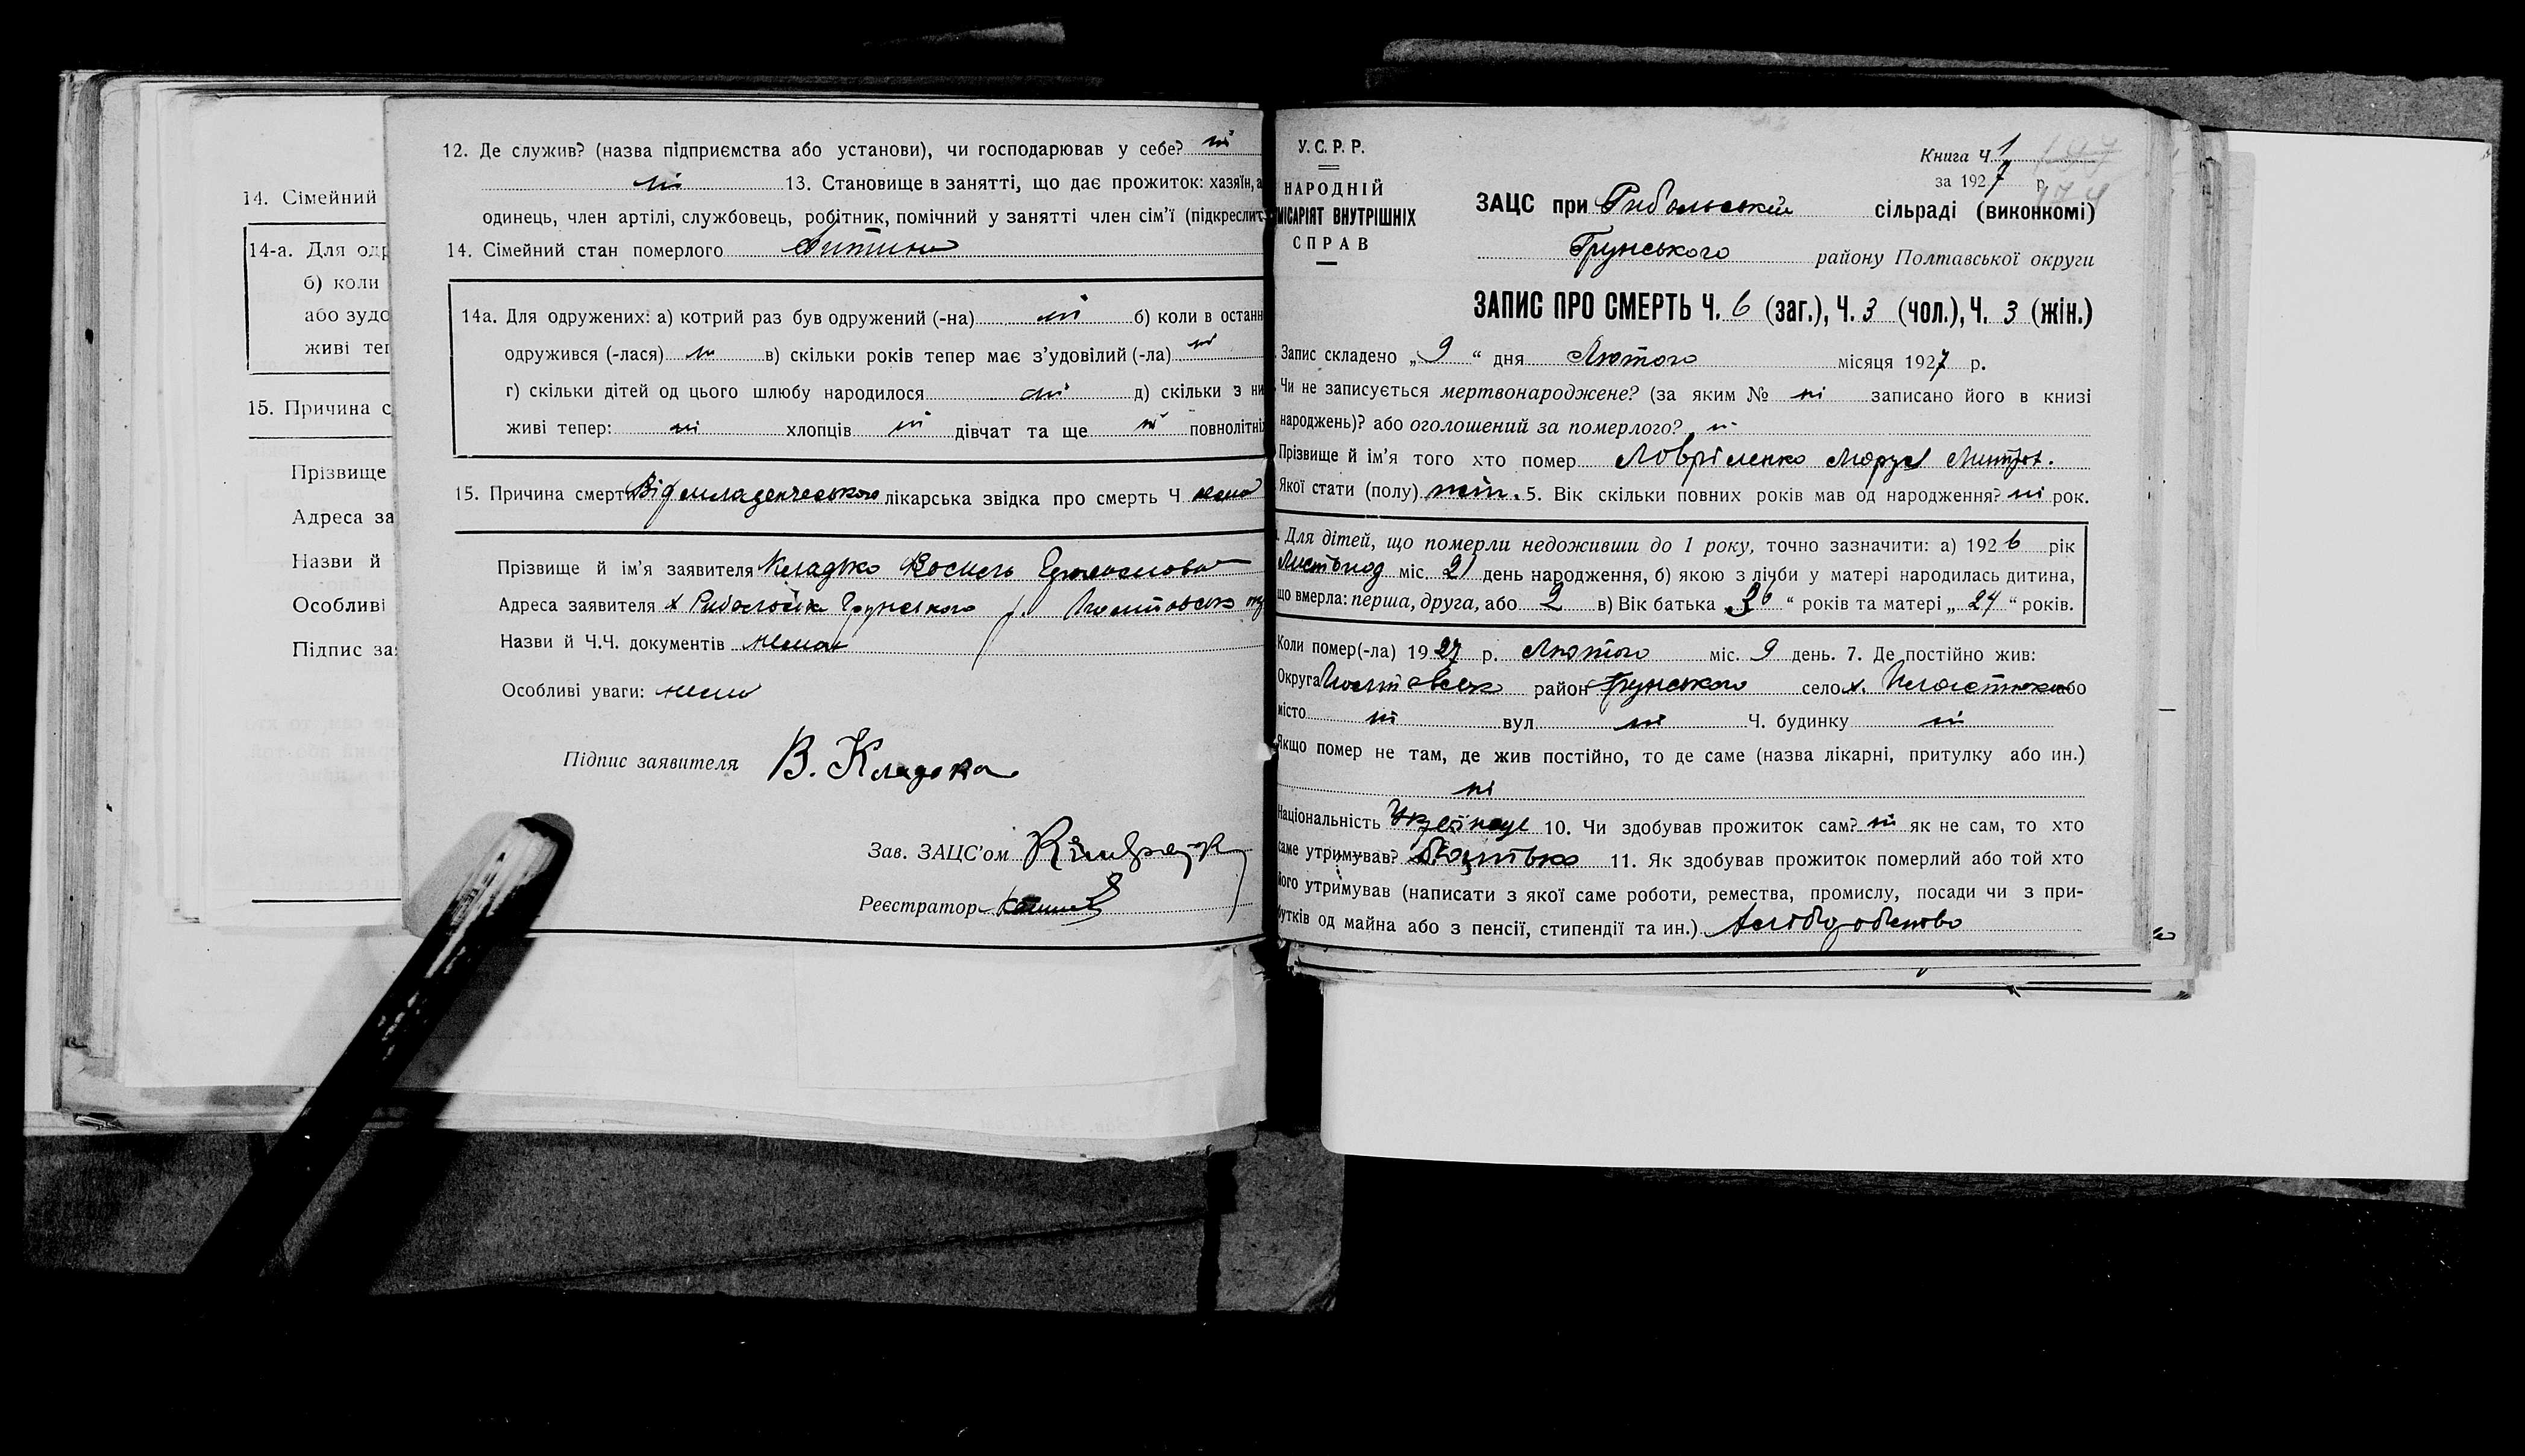 14. Сімейний
14-а. Для одр
б) коли
або зудо
живі теп
15. Причина с
Прізвище
Адреса за
Назви й
Особливі
Підпис за
12. Де служив? (назва підприємства або установи), чи господарював у себе? ні
ні 13. Становище в занятті, що дає прожиток: хазяїн, а
одинець, член артілі, службовець, робітник, помічний у занятті член сім’ї (підкреслит
14. Сімейний стан померлого дитина
14а. Для одружених: а) котрий раз був одружений (-на) ні б) коли в останн
одружився (-лася) ні в) скільки років тепер має з’удовілий (-ла) ні
г) скільки дітей од цього шлюбу народилося ні д) скільки з ни
живі тепер: ні хлопців ні дівчат та ще ні повнолітніх
15. Причина смерти Від младенческого лікарська звідка про смерть Ч нема
Прізвище й ім’я заявителя Кладько Василь
Адреса заявителя х Рибальськ Грунського р. Полтавсько
Назви й Ч.Ч. документів нема
Особливі уваги: нема
Підпис заявителя В. Кладько
Зав. ЗАЦС’ом
Реєстратор
У.С.Р.Р.
НАРОДНІЙ
МІСАРІЯТ ВНУТРІШНІХ
СПРАВ
Книга Ч. 1
за 1927 р.
174
ЗАЦС при Рибальській сільраді (виконкомі)
Грунського району Полтавської округи
ЗАПИС ПРО СМЕРТЬ Ч. 6 (заг.), Ч. 3 (чол.), Ч. 3 (жін.)
Запис складено „9“ дня Лютого місяця 1927 р.
Чи не записується мертвонароджене? (за яким № ні записано його в книзі
народжень)? або оголошений за померлого? ні
Прізвище й ім’я того хто помер Ловріленко Маруся Дмитров.
Якої стати (полу) жін. 5. Вік скільки повних років мав од народження? ні рок.
Для дітей, що померли недоживши до 1 року, точно зазначити: а) 1926 рік
Листопад міс. 21 день народження, б) якою з лічби у матері народилась дитина,
що вмерла: перша, друга, або 2 в) Вік батька „26“ років та матері „24“ років.
Коли помер(-ла) 1927 р. Лютого міс. 9 день. 7. Де постійно жив:
Округа Полтавськ район Грунського село х. або
місто ні вул ні Ч. будинку ні
Якщо помер не там, де жив постійно, то де саме (назва лікарні, притулку або ин.)
ні
Національність Украінка 10. Чи здобував прожиток сам? ні як не сам, то хто
саме утримував? батько 11. Як здобував прожиток померлий або той хто
його утримував (написати з якої саме роботи, ремества, промислу, посади чи з при-
бутків од майна або з пенсії, стипендії та ин.) хліборобство